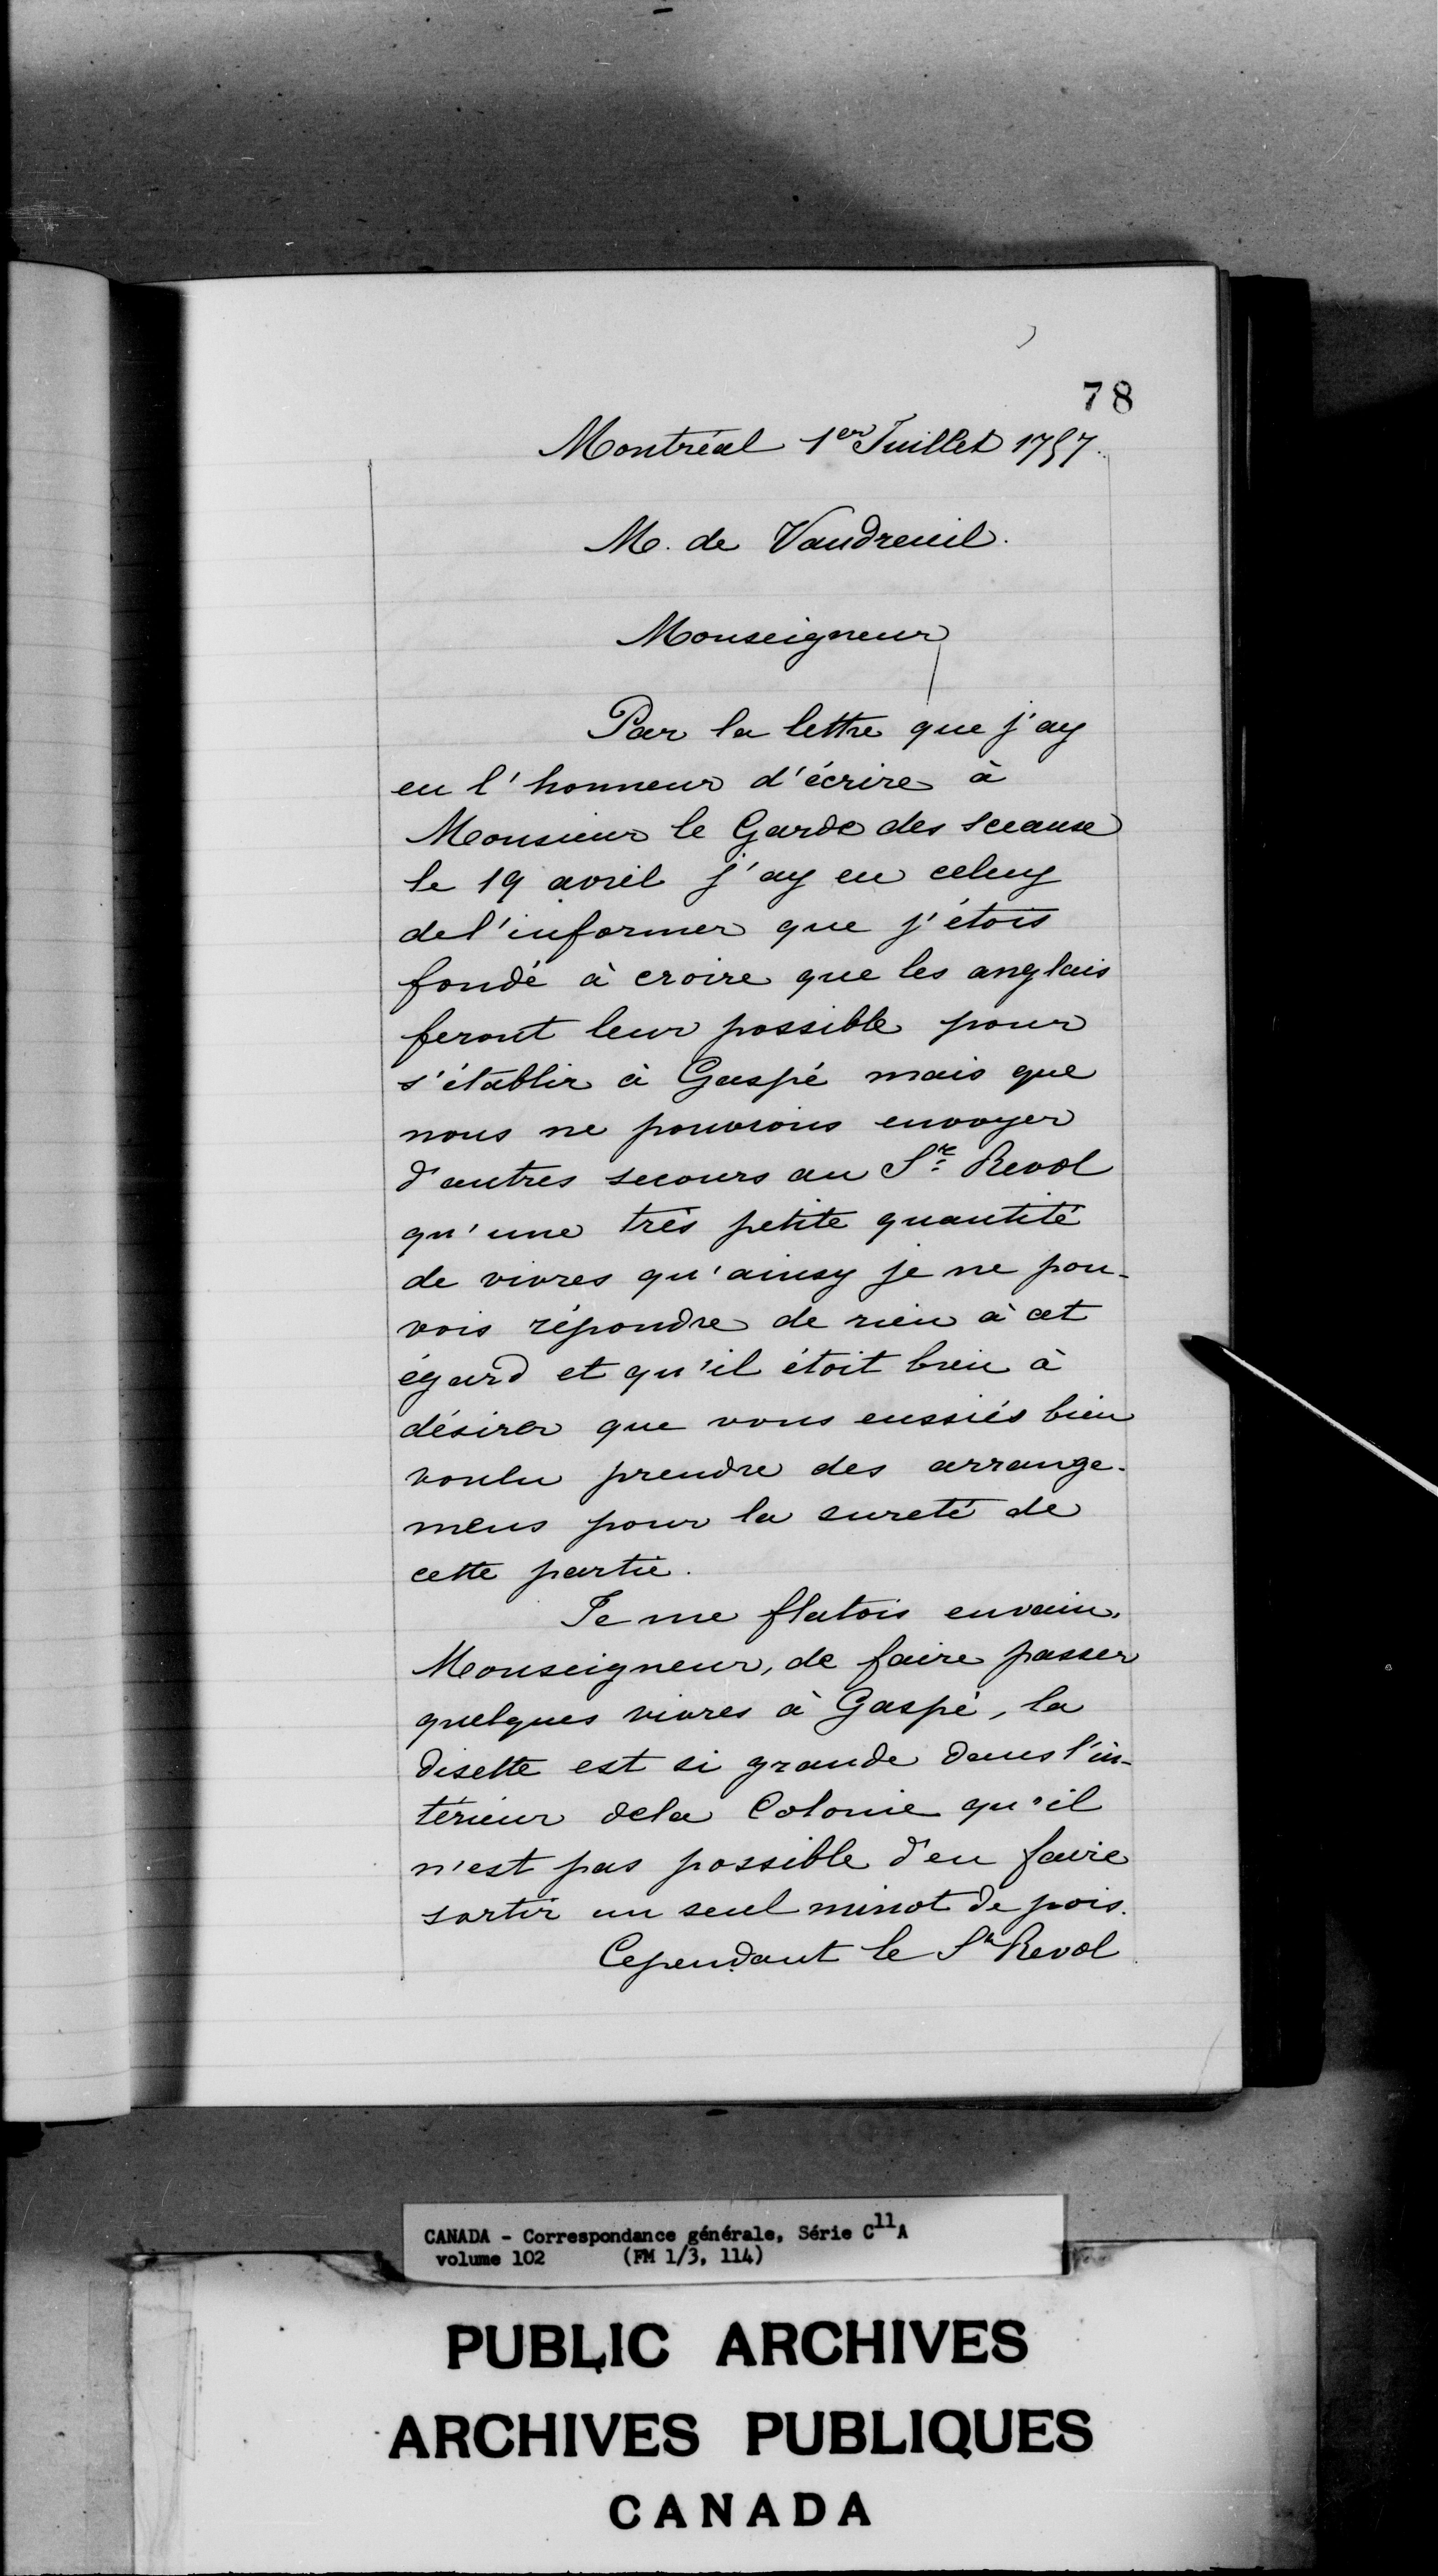 78
Montréal 1er Juillet 1757.
M. de Vaudreuil.
Monseigneur
Par la lettre que j'ay
eu l'honneur d'écrire à
Monsieur le Garde des sceaux
le 19 avril j'ay eu celuy
del'informer que j'étois
fondé à croire que les anglais
feront leur possible pour
s'établir à Gaspé mais que
nous ne pouvions envoyer
d'autres secours au Sr Revol
qu'une très petite quantité
de vivres qu'ainsy je ne pou-
vois répondre de rien à cet
égard et qu'il étoit bien à
désirer que vous eussiés bien
voulu prendre des arrange-
mens pour la sureté de
cette partie.
Je me flatois envain,
Monseigneur, de faire passer
quelques vivres à Gaspé, la
disette est si grande dans l'in-
térieur dela Colonie qu'il
n'est pas possible d'en faire
sortir un seul minot de pois.
Cependant le Sr Revol
CANADA - Correspondance générale, Série C11A
volume 102 (FM 1/3, 114)
PUBLIC ARCHIVES
ARCHIVES PUBLIQUES
CANADA